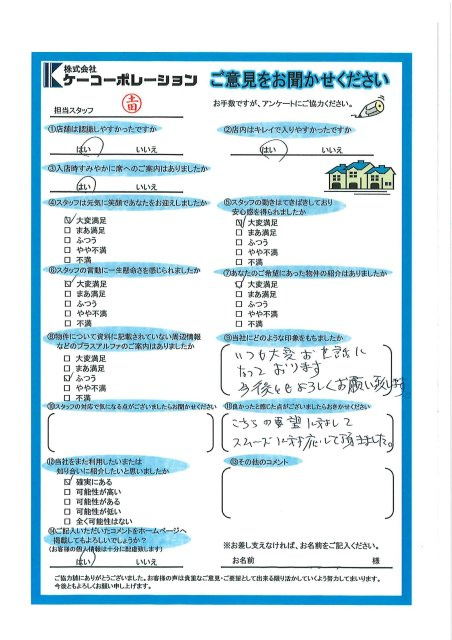 株式会社
ケーコーポレーション
ご意見をお聞かせください
担当スタッフ
土田
お手数ですが、アンケートにご協力ください。
①店舗は認識しやすかったですか
はい いいえ
②店内はキレイで入りやすかったですか
はい いいえ
③入店時すみやかに席へのご案内はありましたか
はい いいえ
④スタッフは元気に笑顔であなたをお迎えしましたか
大変満足
まあ満足
ふつう
やや不満
不満
⑤スタッフの動きはてきぱきしており
安心感を得られましたか
大変満足
まあ満足
ふつう
やや不満
不満
⑥スタッフの言動に一生懸命さを感じられましたか
大変満足
まあ満足
ふつう
やや不満
不満
⑦あなたのご希望にあった物件の紹介はありましたか
大変満足
まあ満足
ふつう
やや不満
不満
⑧物件について資料に記載されていない周辺情報
などのプラスアルファのご案内はありましたか
大変満足
まあ満足
ふつう
やや不満
不満
⑨当社にどのような印象をもちましたか
いつも大変お世話に
なっております
今後ともよろしくお願い致します
⑩スタッフの対応で気になる点がございましたらお聞かせください
⑪良かったと感じた点がございましたらお聞かせください
こちらの要望に対して
スムーズに対応して頂きました。
⑫当社をまた利用したいまたは
知り合いに紹介したいと思いましたか
確実にある
可能性が高い
可能性がある
可能性が低い
全く可能性はない
⑬その他のコメント
⑭ご記入いただいたコメントをホームページへ
掲載してもよろしいでしょうか?
(お客様の個人情報は十分に配慮致します)
はい いいえ
※お差し支えなければ、お名前をご記入ください。
お名前 様
ご協力誠にありがとうございました。お客様の声は貴重なご意見・ご要望として出来る限り活かしていくよう努力してまいります。
今後ともよろしくお願い申し上げます。